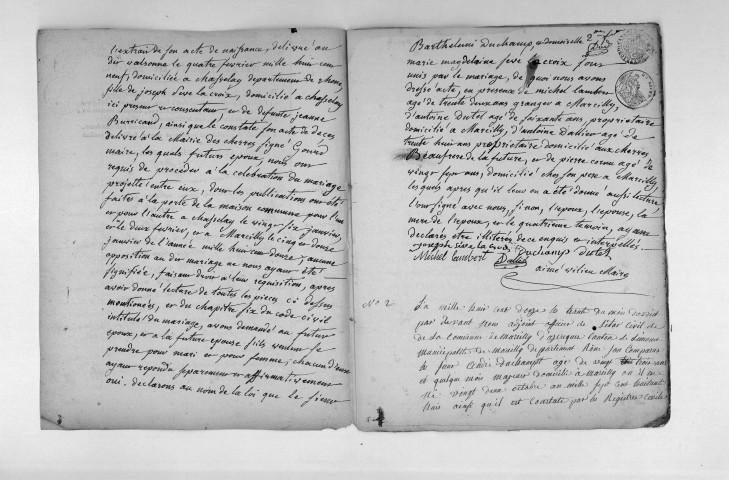 l'extrait de son acte de naissance, délivré au
dit valsonne le quatre fevrier mille huit cent
neuf, domiciliée a chasselay departement du rhone,
fille de joseph seve la croix, domicilié a chasselay
ici present et consentant et de defunte jeanne
Burricand, ainsi que le constate son acte de deces
delivré a la Mairie des cheres signé
maire, lesquels futurs epoux, nous ont
requis de proceder a la celebration du mariage
projetté entre eux, dont les publications ont été
faites a la porte de la maison commune pour l'un
et pour l'autre a chasselay le vingt six janvier,
et le deux fevrier, et a Marcilly le cinq et douze
janvier de l'année mille huit cent douze, aucune
opposition au dit mariage ne nous ayant été
signifiée, faisant droit a leur requisition, apres
avoir donné lecture de toutes les pieces ci dessus
mentionées, et du chapitre six du code civil
intitulé du mariage, avons demandé au futur
epoux, et a la future epouse s'ils veulent se
prendre pour mari et pour femme; chacun d'eux
ayant repondu separement et affirmativement
oui. declarons au nom de la loi que le sieur
Barthelemi Duchamp, et demoiselle
marie magdelaine seve la croix sont
unis par le mariage, de quoi nous avons
dressé acte, en presence de michel lambert
agé de trente deux ans granger a Marcilly,
d'antoine Dutel agé de soixante ans, propriétaire
domicilié a Marcilly, d'antoine agé de
trente huit ans propriétaire domicilié aux cheres
Beaufrere de la future, et de pierre cornu agé de
vingt sept ans, domicilié chez son pere a Marcilly,
lesquels apres qu'il leur en a été donné aussi lecture
l'ont signé avec nous, sinon, l'epoux, l'epouse, la
mere de l'epoux, et le quatrieme temoin, ayant
déclarés etre illiterés de ce enquis et intervellés.
joseph seve la croix Duchamp Dutel
Michel Lambert
aimé vilieu Maire
No 2 La mille huit cent douze le trente du mois
par devant nous adjoint officier de l'état civil de
de la commune de marcilly d'azergue canton de Limonest
municipalité de marcilly departement Rône sont comparus
le sieur Duchampt agé de vingt trois ans
et quelque mois majeur domicilié a marcilly où il est
né vingt deux octobre an mille sept cent huitant
huit ainsi qu'il est constaté par les Registres civils